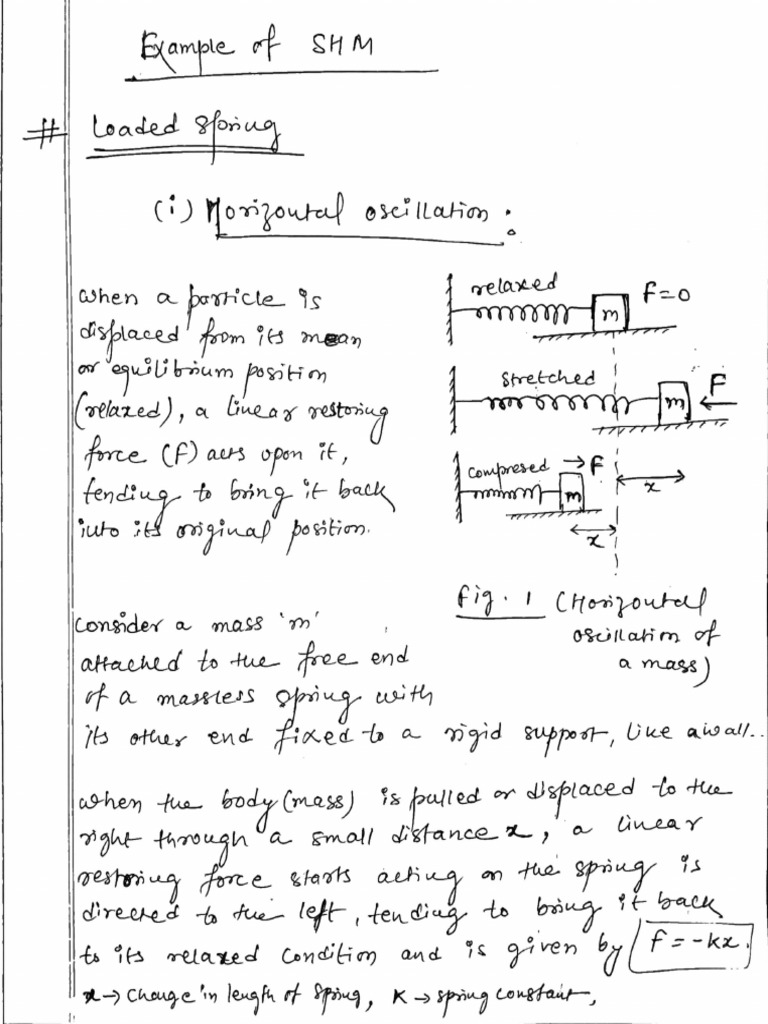 Example of SHM
# Loaded spring
(i) Horizontal oscillation :
when a particle is
displaced from its mean
or equilibrium position
(relaxed), a linear restoring
force (F) acts upon it,
tending to bring it back
into its original position.
relaxed
m
F=0
stretched
m
F
compresed
F
m
x
x
Fig. 1 (Horizontal
oscillation of
a mass)
Consider a mass 'm'
attached to the free end
of a massless spring with
its other end fixed to a rigid support, like a wall..
when the body (mass) is pulled or displaced to the
right through a small distance x, a linear
restoring force starts acting on the spring is
directed to the left, tending to bring it back
to its relaxed condition and is given by F = -kx.
x → change in length of spring, K → spring constant,